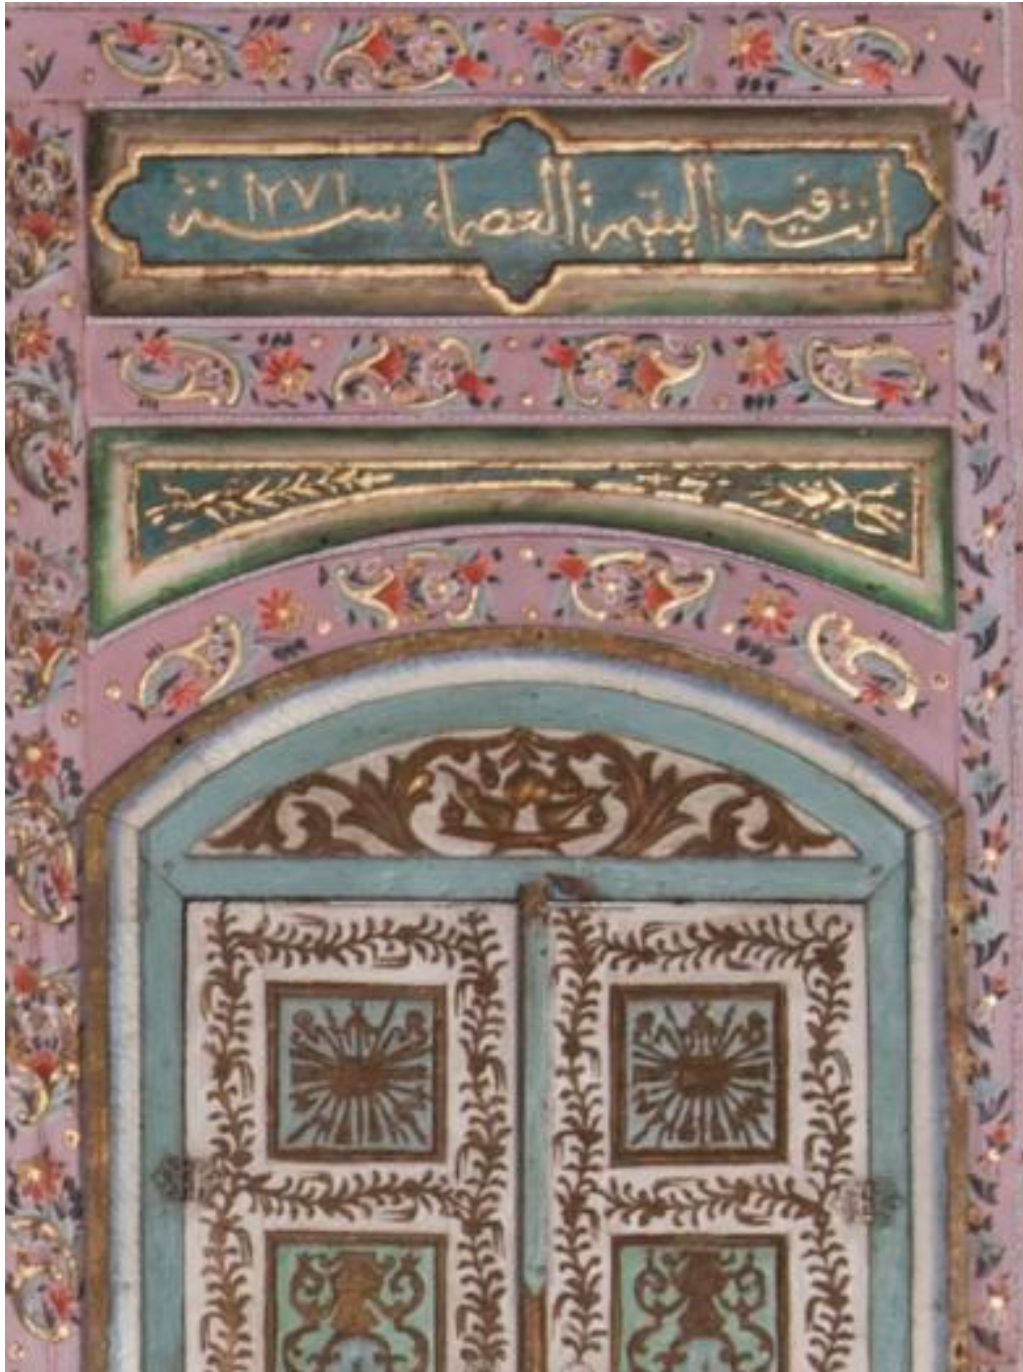 انت فيه اليتيمة العصماء سنة ١٢٧١